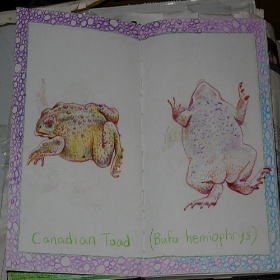 Canadian Toad (Bufo hemiophrys)